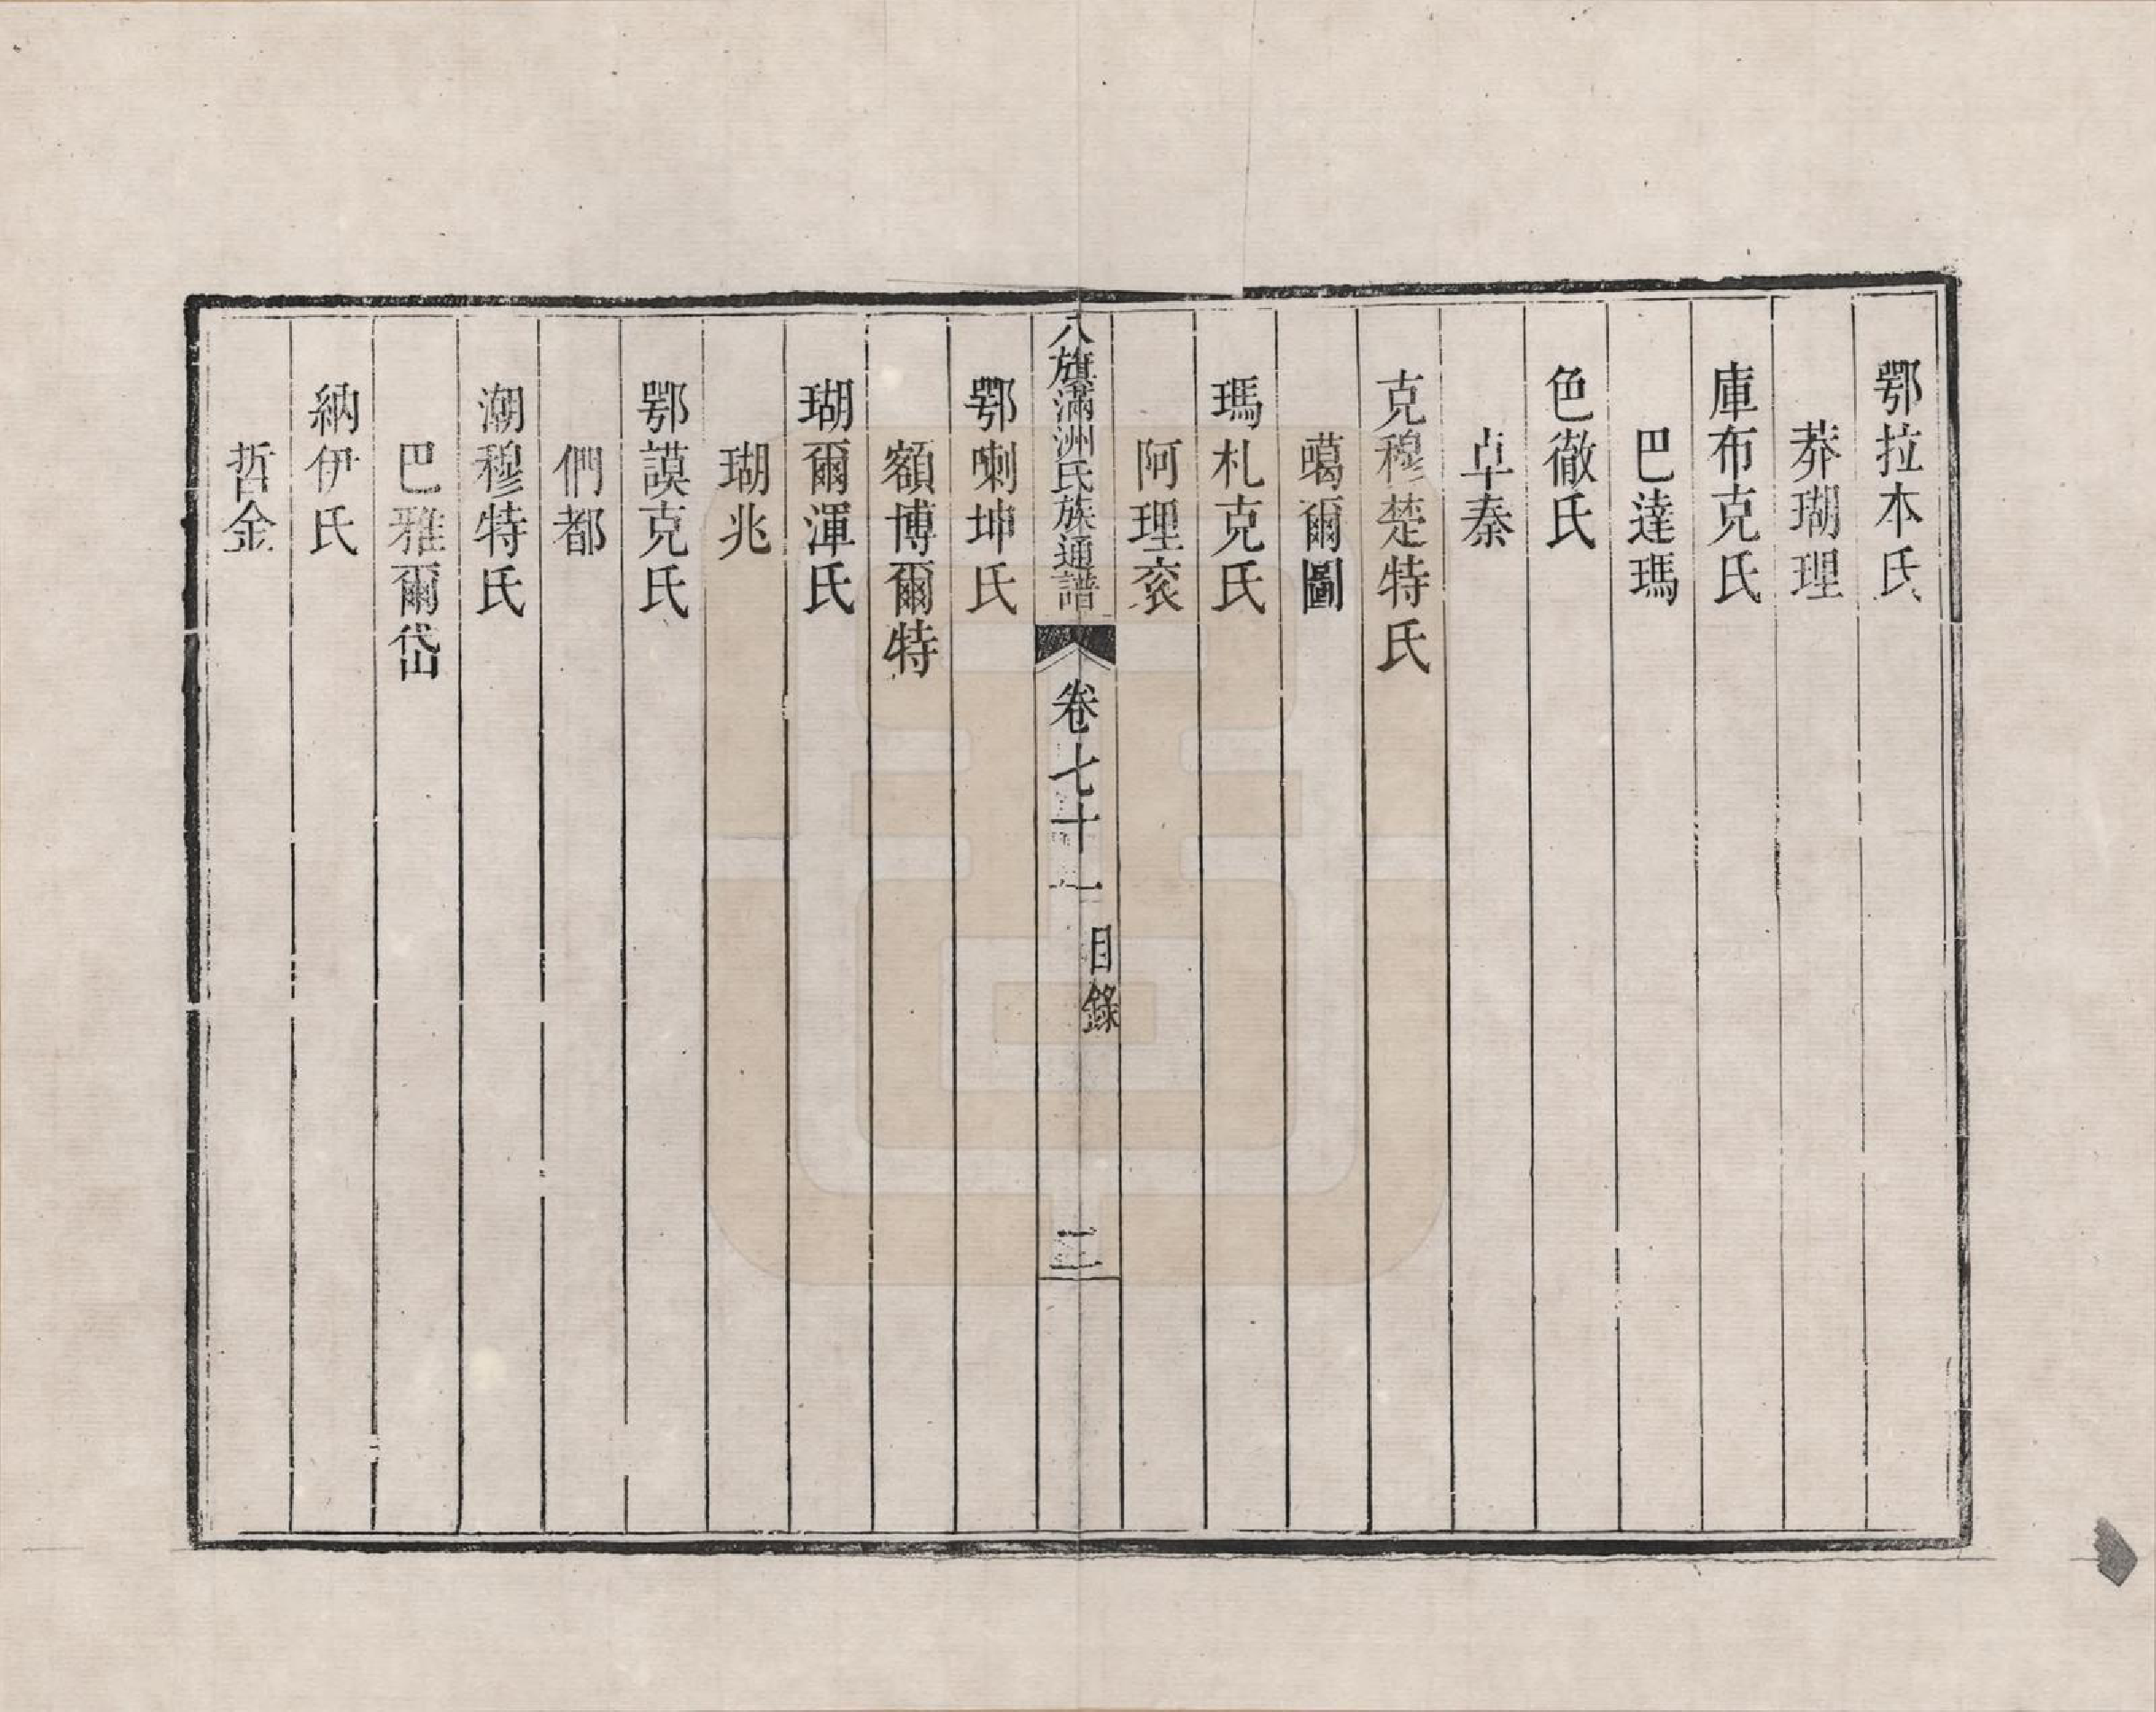 鄂拉本氏
莽瑚理
庫布克氏
巴達瑪
色徹氏
卓秦
克穆楚特氏
噶爾圖
瑪札克氏
阿理衮
八旗滿洲氏族通譜
卷七十一
目錄
二
鄂喇坤氏
額博爾特
瑚爾渾氏
瑚兆
鄂謨克氏
們都
潮穆特氏
巴雅爾岱
納伊氏
哲金